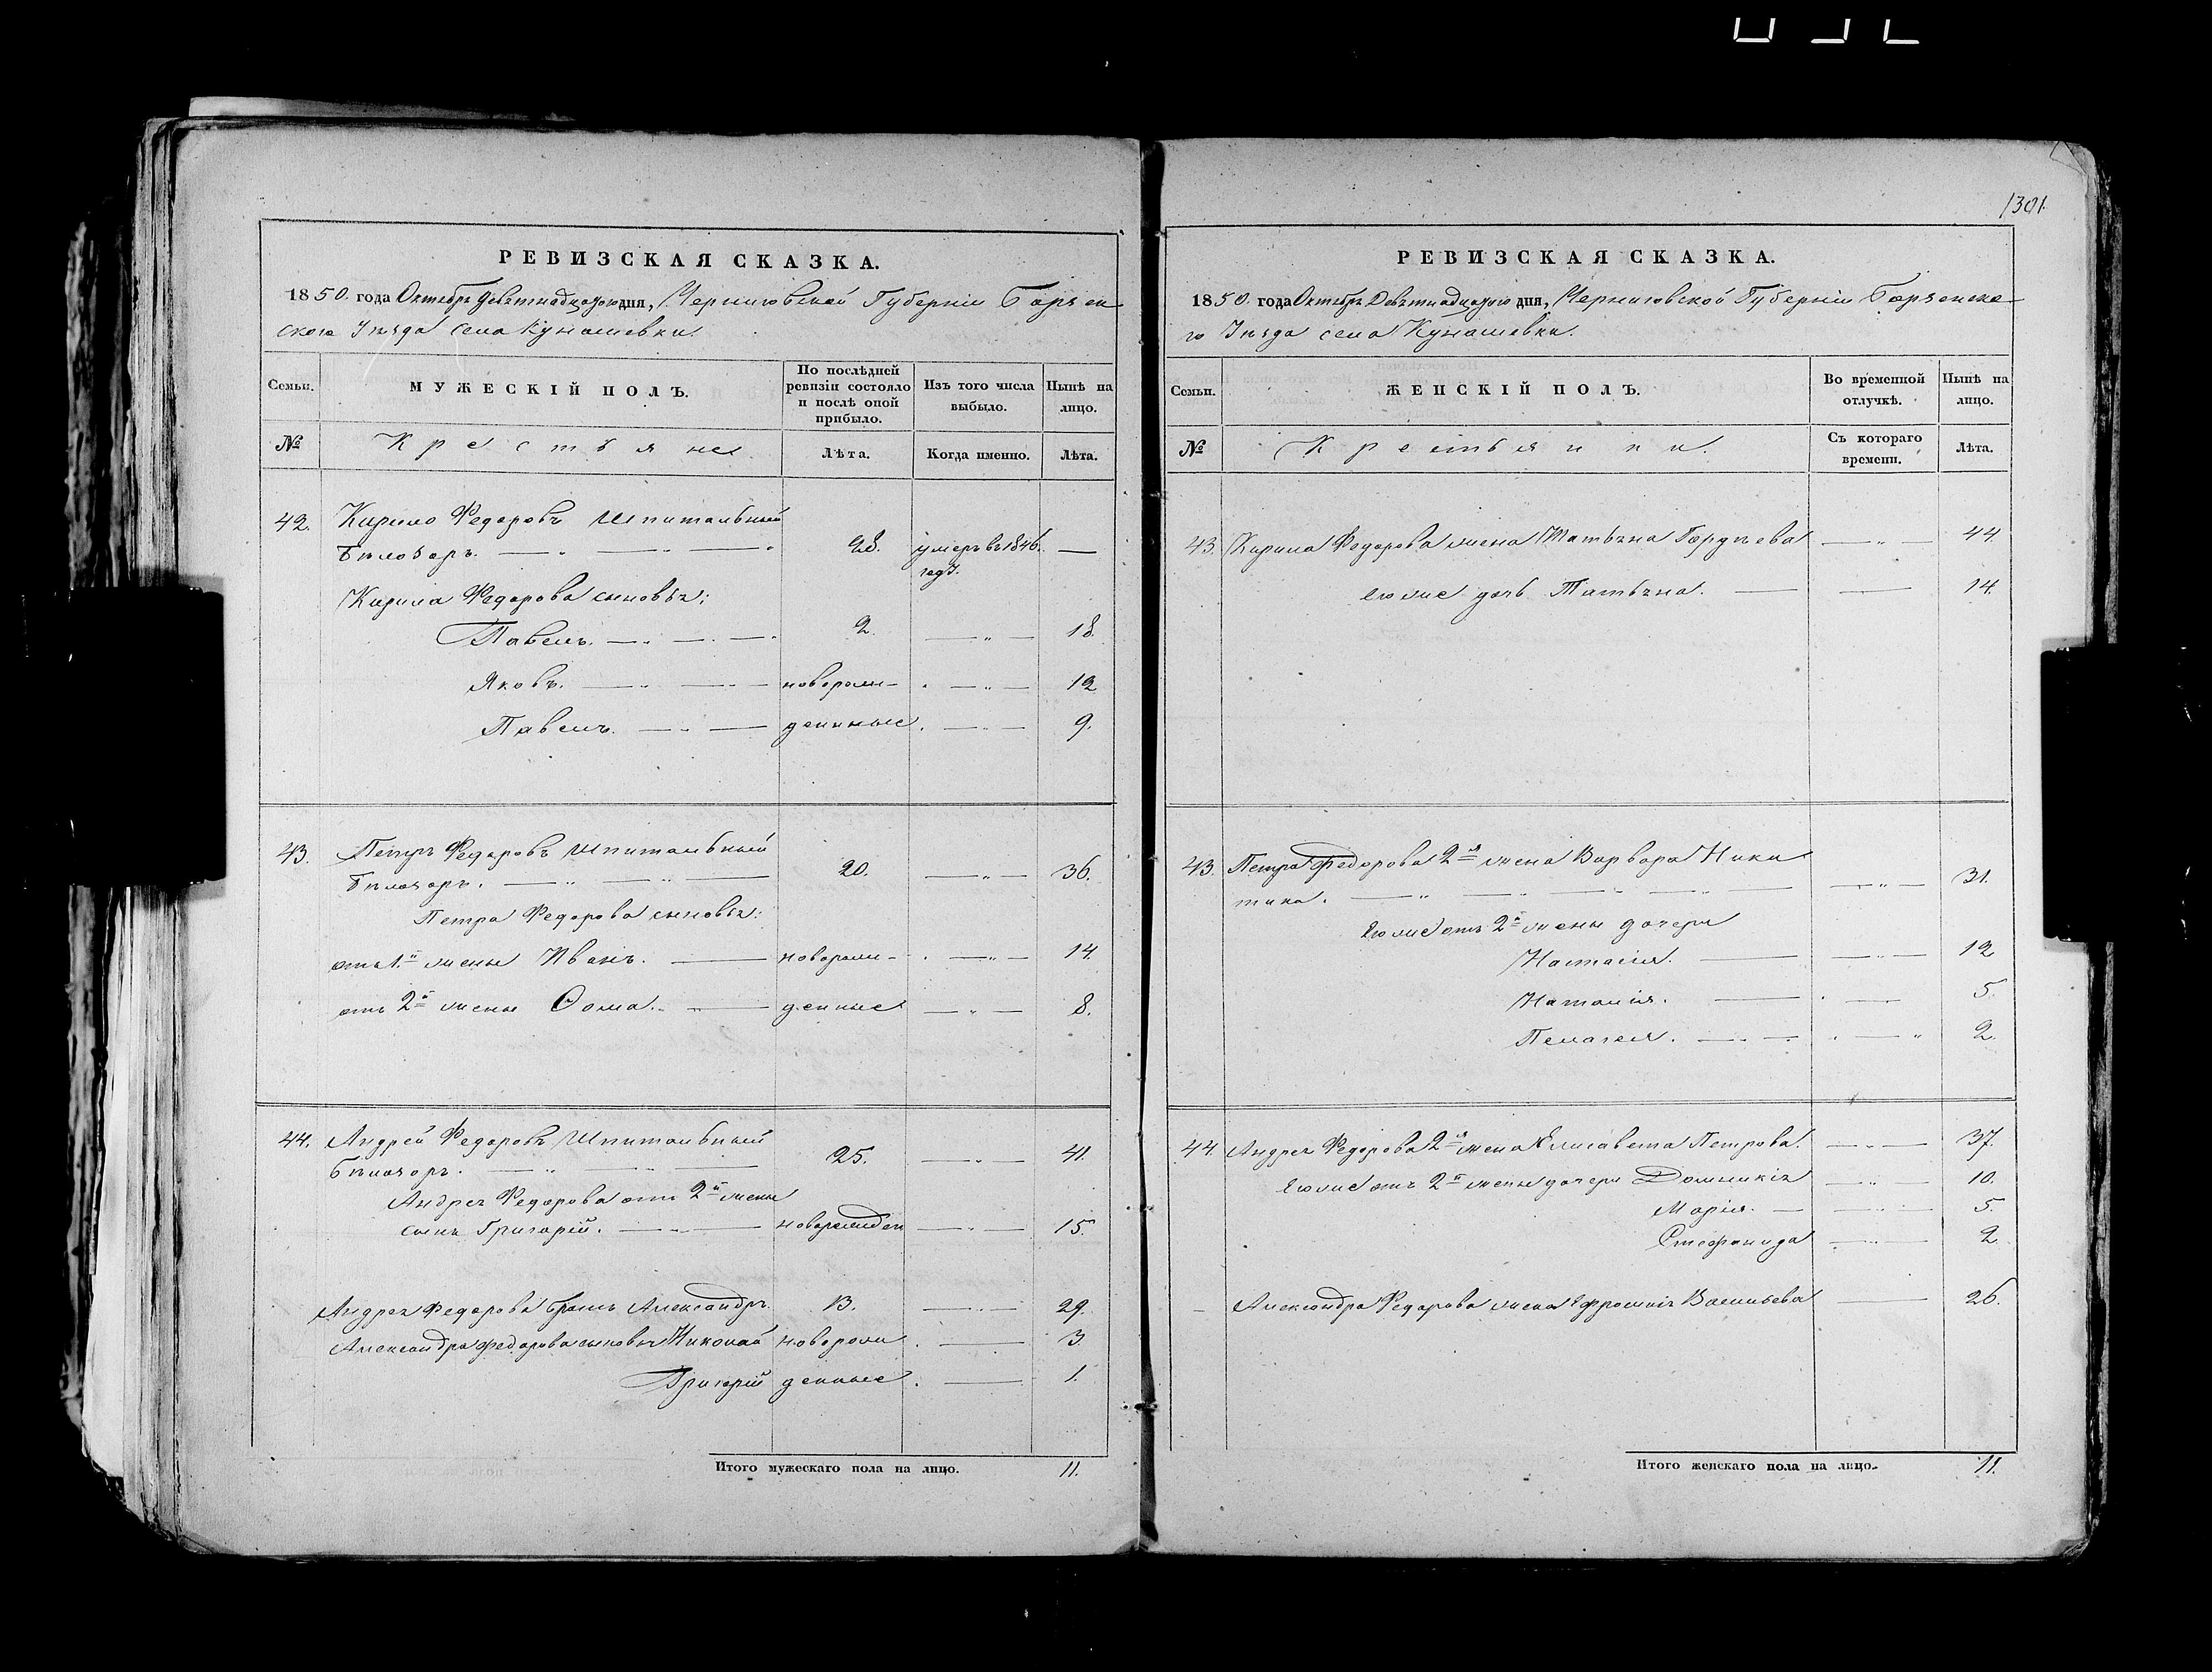 1301
РЕВИЗСКАЯ СКАЗКА.
1850. года Октября девятнадцатого дня, Черниговской Губерніи Борзен
ского Уѣзда села Кунашевки.
Семьи.
МУЖЕСКІЙ ПОЛЪ.
По послѣдней
ревизіи состояло
и послѣ оной
прибыло.
Изъ того числа
выбыло.
Нынѣ на
лицо.
№
Крестьяне
Лѣта.
Когда именно.
Лѣта.
42. Кирило Федоровъ Шпитальный
Бѣлозоръ. 28. умеръ въ 1846. —
году.
Кирила Федорова сыновья:
Павелъ. 2. 18.
Яковъ. новорож- 12
Павелъ. денные 9.
43. Петръ Федоровъ Шпитальный
Бѣлозоръ. 20. 36.
Петра Федорова сыновья:
отъ 1й жены Иванъ. новорож- 14.
отъ 2й жены Фома. денные 8.
44. Андрей Федоровъ Шпитальный
Бѣлозоръ. 25. 41.
Андрея Федорова отъ 2й жены
сынъ Григорій. новорожден 15.
Андрея Федорова братъ Александръ. 13. 29.
Александра Федорова сыновья Николай новорож 3.
Григорій денные 1.
Итого мужескаго пола на лицо. 11.
РЕВИЗСКАЯ СКАЗКА.
1850. года Октября Девятнадцатого дня, Черниговской Губерніи Борзенско-
го Уѣзда села Кунашевки.
Семьи.
ЖЕНСКІЙ ПОЛЪ.
Во временной
отлучкѣ.
Нынѣ на
лицо.
№
Крестьянки.
Съ котораго
времени.
Лѣта.
43. Кирила Федорова жена Татьяна Гордѣева 44
его же дочь Татьяна. 14.
43. Петра Федорова 2я жена Варвара Ники
тина. 31.
Его же отъ 2й жены дочери
Настасія. 12
Наталія. 5.
Пелагея. 2.
44. Андрея Федорова 2я жена Елисавета Петрова. 37.
Его же отъ 2й жены дочери Домникія 10.
Марія. 5.
Стефанида 2.
Александра Федорова жена Ефросинія Васильева 26.
Итого женскаго пола на лицо. 11.